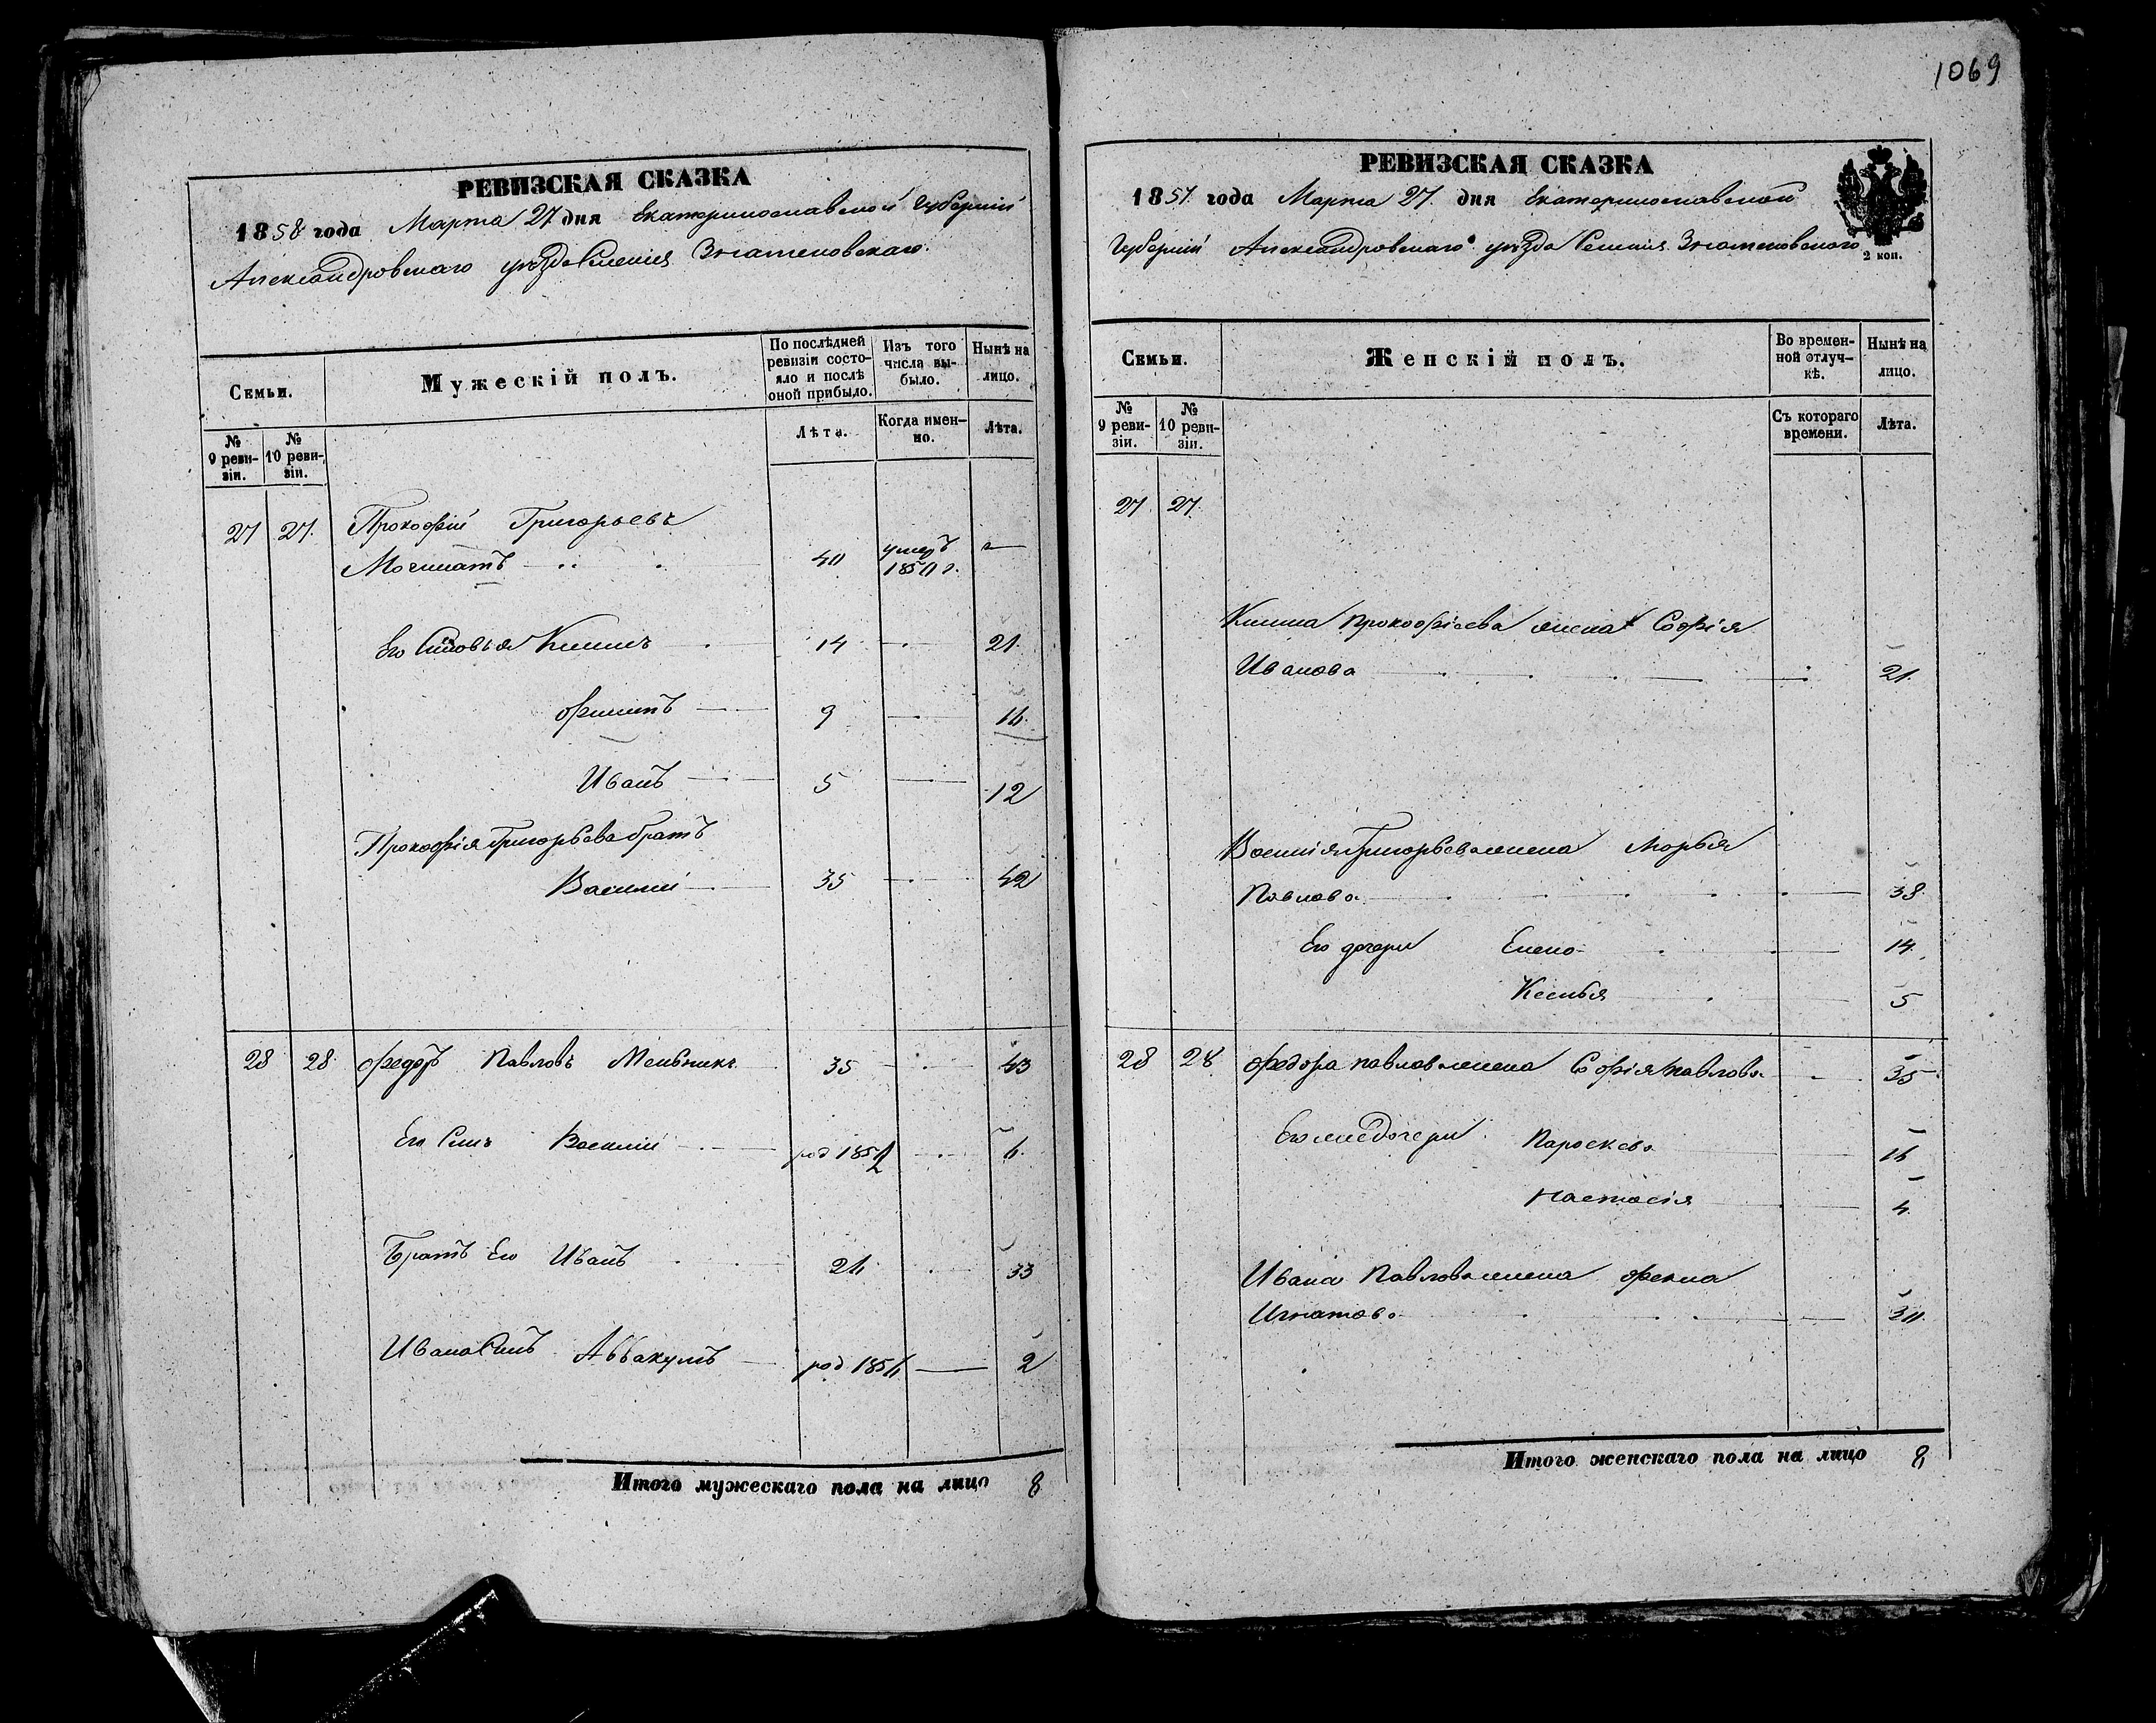 1069
РЕВИЗСКАЯ СКАЗКА
1858 года Марта 27 дня Екатеринославской Губерніи
Александровскаго уѣзда Селенія Знаменовскаго.
Семьи.
Мужескій полъ.
По послѣдней ревизіи состояло и послѣ оной прибыло.
Изъ того числа выбыло.
Нынѣ на лицо.
№ 9 ревизіи.
№ 10 ревизіи.
Лѣта.
Когда именно.
Лѣта.
27 27. Прокофій Григорьевъ
40 умеръ 1850 г.
Его Сыновья Климъ 14 21.
Филипъ 9 16.
Иванъ 5 12
Прокофія Григорьева братъ
Василій 35 42
28 28 Федоръ Павловъ Мельникъ 35 43
Его Сынъ Василій род 1852 6.
Братъ Его Иванъ 26 33
Ивана Сынъ Аввакумъ род 1856 2
Итого мужескаго пола на лицо 8
РЕВИЗСКАЯ СКАЗКА
1857 года Марта 27 дня Екатеринославской
Губерніи Александровскаго уѣзда Селенія Знаменовскаго
2 коп.
Семьи.
Женскій полъ.
Во временной отлучкѣ.
Нынѣ на лицо.
№ 9 ревизіи.
№ 10 ревизіи.
Съ котораго времени.
Лѣта.
27 27.
Клима Прокофіева жена Софія
Иванова 21.
Василія Григорьева жена Марья
Павлова 38.
Его дочери Елена 14.
Ксенья 5
28 28 Федора Павлова жена Софія Павлова 35.
Его же дочери Параскева 16
Настасія 4.
Ивана Павлова жена Фекла
Игнатова 30.
Итого женскаго пола на лицо 8